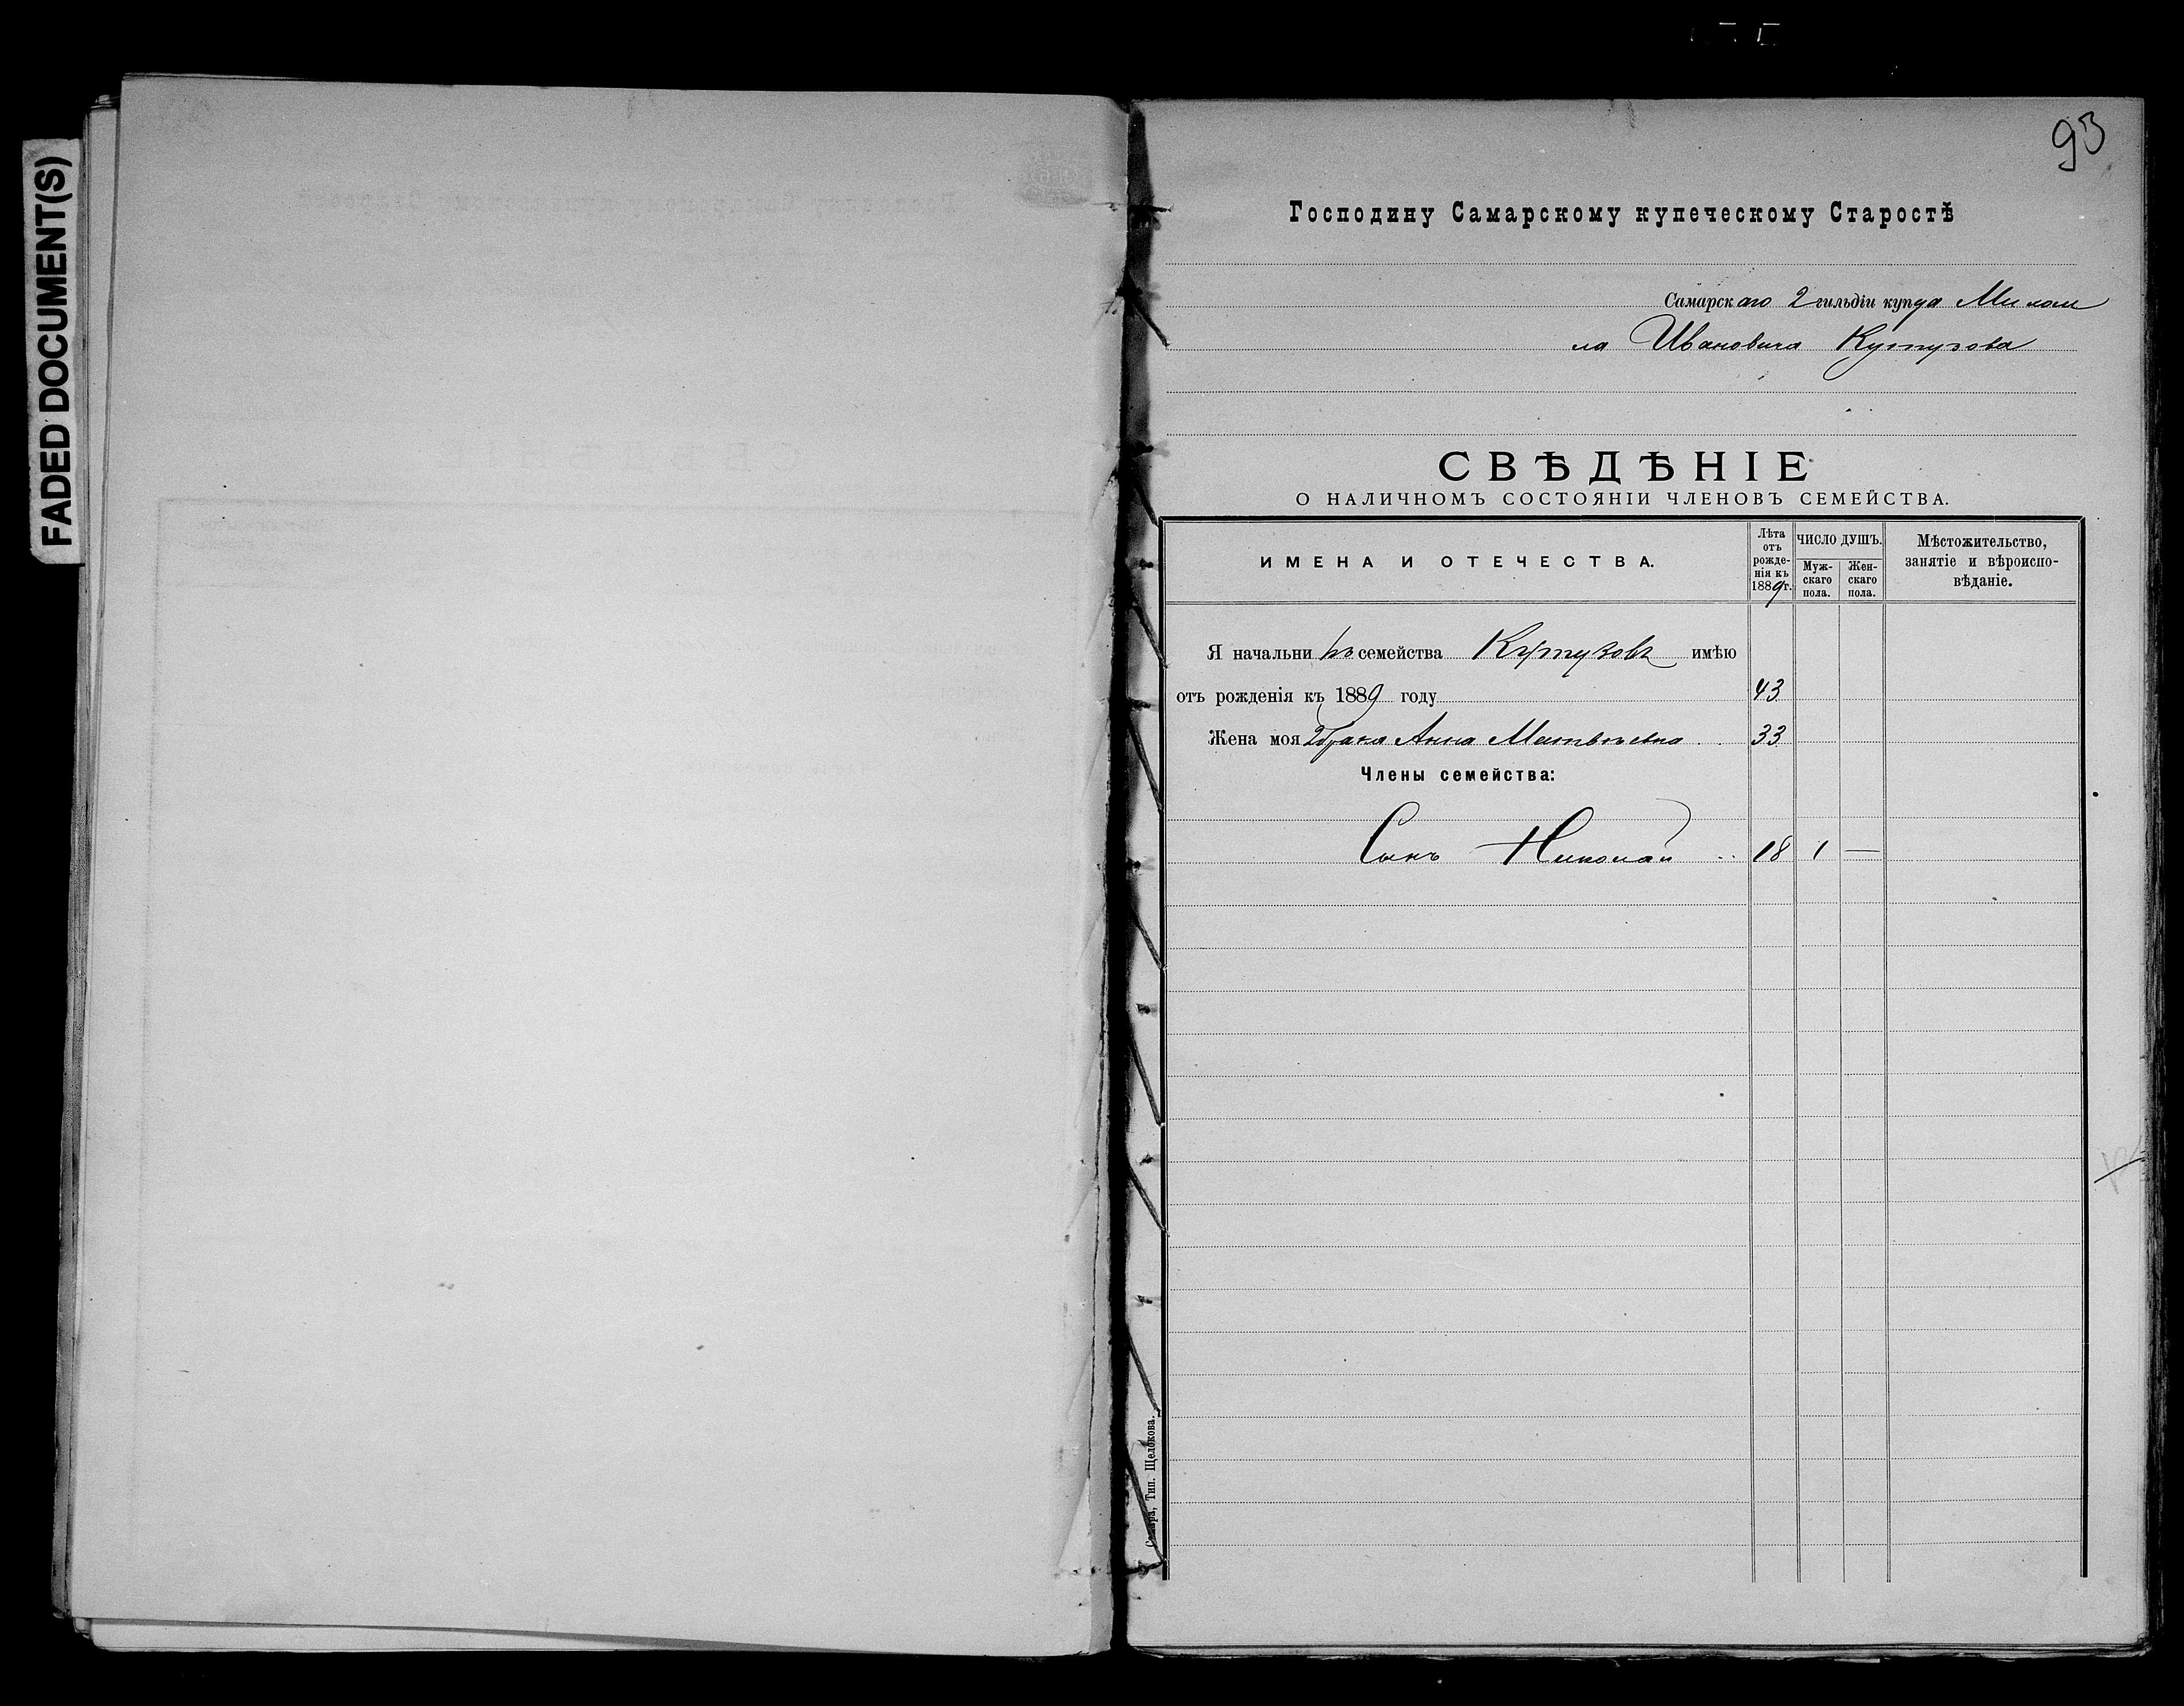 FADED DOCUMENT(S)
93
Господину Самарскому купеческому Старостѣ
Самарскаго 2 гильдіи купца Михаи
ла Ивановича Кутузова
СВѢДѢНІЕ
О НАЛИЧНОМЪ СОСТОЯНІИ ЧЛЕНОВЪ СЕМЕЙСТВА.
ИМЕНА И ОТЕЧЕСТВА.
Лѣта отъ рожденія къ 1889 г.
ЧИСЛО ДУШЪ.
Мужскаго пола.
Женскаго пола.
Мѣстожительство, занятіе и вѣроисповѣданіе.
Я начальникъ семейства Кутузовъ имѣю
отъ рожденія къ 1889 году 43
Жена моя 2 брака Анна Матвѣевна 33
Члены семейства:
Сынъ Николай 18 1 —
Самара, Тип. Щелокова.